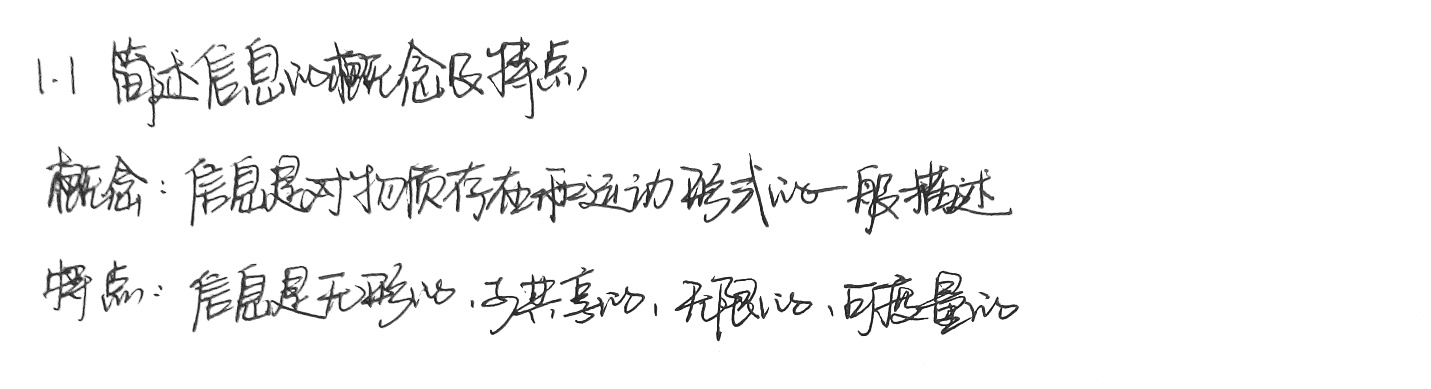 1.1 简述信息的概念及特点
概念：信息是对物质存在和运动形式的一般描述
特点：信息是无形的、可共享的、无限的、可度量的